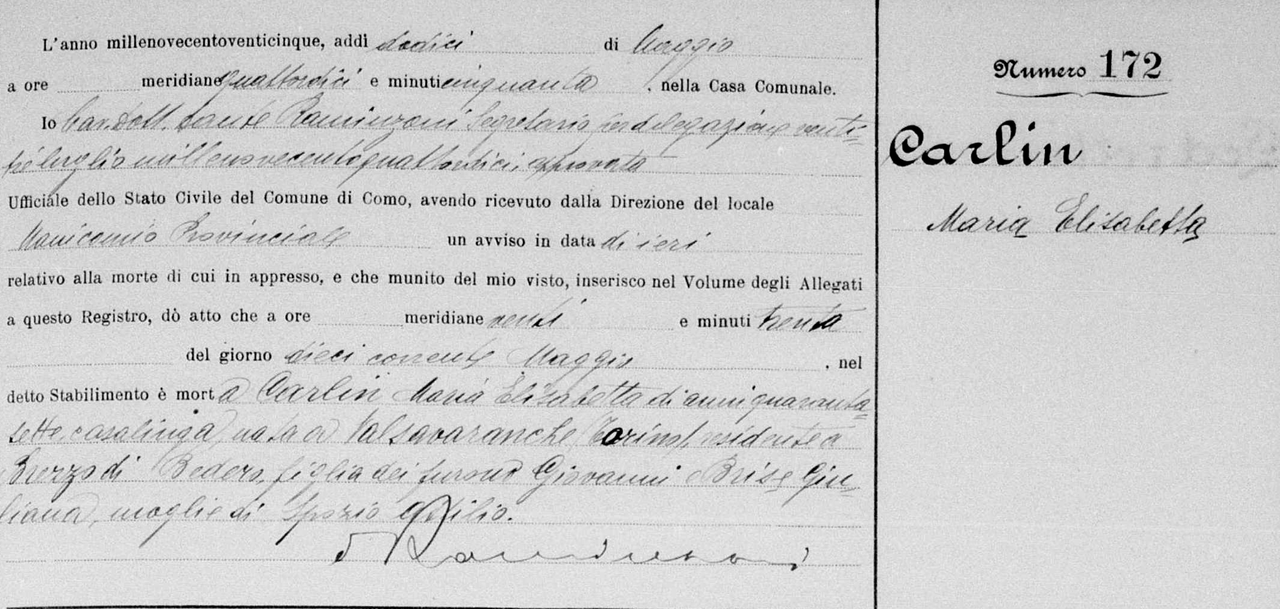 L'anno millenovecentoventicinque, addì dodici di Maggio
a ore meridiane quattordici e minuti cinquanta, nella Casa Comunale.
Io Cav. Dott. Sante Raminzoni Segretario per delegazione venti-
tré luglio millenovecentoquattordici, approvata
Ufficiale dello Stato Civile del Comune di Como, avendo ricevuto dalla Direzione del locale
Manicomio Provinciale un avviso in data di ieri
relativo alla morte di cui in appresso, e che munito del mio visto, inserisco nel Volume degli Allegati
a questo Registro, dò atto che a ore meridiane venti e minuti trenta
del giorno dieci corrente Maggio, nel
detto Stabilimento è morta Carlin Maria Elisabetta di anni quaranta-
sette, casalinga, nata a Valsavaranche (Torino), residente a
Brezzo di Bedero, figlia dei furono Giovanni e Brise Giu-
liana, moglie di Spozio
Numero 172
Carlin
Maria Elisabetta